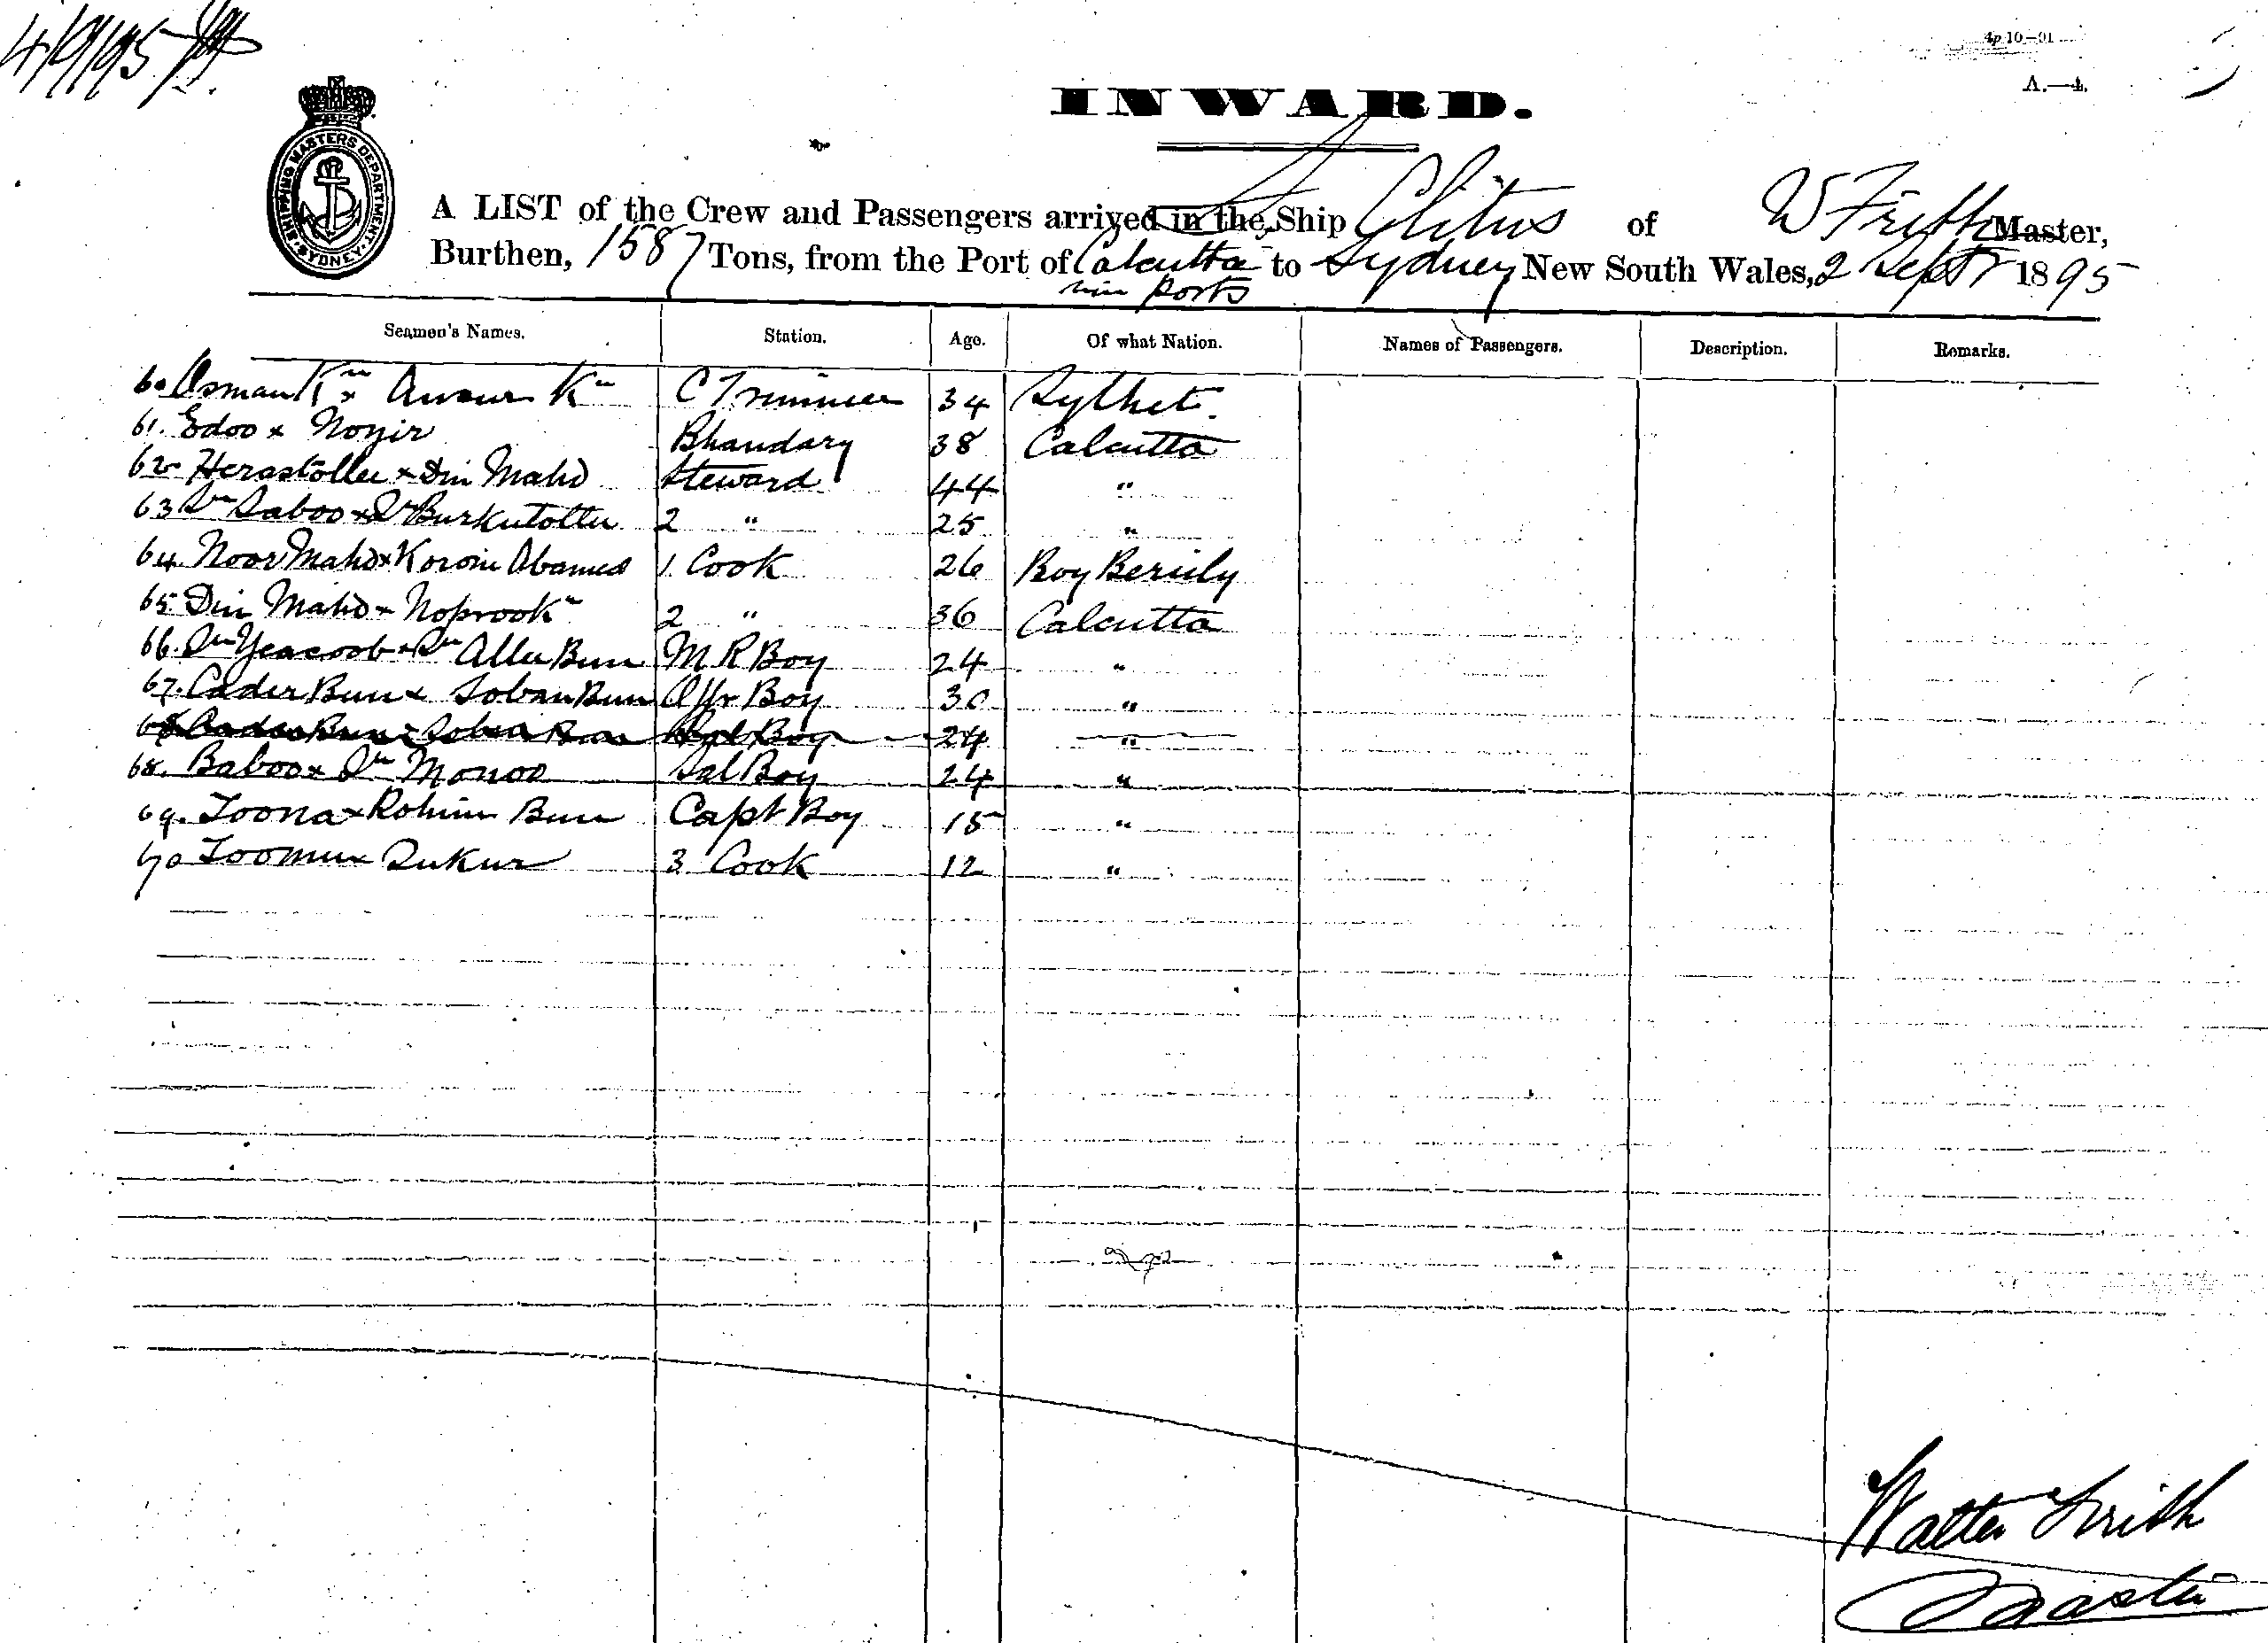 4/9/95
4p 10—91
A.—4.
SHIPPING MASTERS DEPARTMENT. SYDNEY.
INWARD.
A LIST of the Crew and Passengers arrived in the Ship Clitus of W Frith Master,
Burthen, 1587 Tons, from the Port of Calcutta to Sydney New South Wales, 2 Sept 1895
via Ports
Seamen's Names. Station. Age. Of what Nation. Names of Passengers. Description. Remarks.
60 Osman Kn x Kn C Trimmer 34 Sylhet.
61. Edoo x Noyir Bhandary 38 Calcutta
62 Herastollee x Din Mahd Steward 44 "
63 Sn Saboo x Sn Burkutollee 2 " 25 "
64. Noor Mahd x Ahamed 1. Cook 26 Roy Berily
65. Din Mahd x Noprook 2 " 36 Calcutta
66. Sn Yeacoob x Sn Alla Bux M R Boy 24 "
67. Cader Bux x Soban Bux Offr Boy 30 "
Boy 24 "
68. Baboo x Sn Monoo Sal Boy 24 "
69. Toona x Rohim Bux Capt Boy 15 "
70 Toomu x Sukur 3 Cook 12 "
Walter Frith
Master